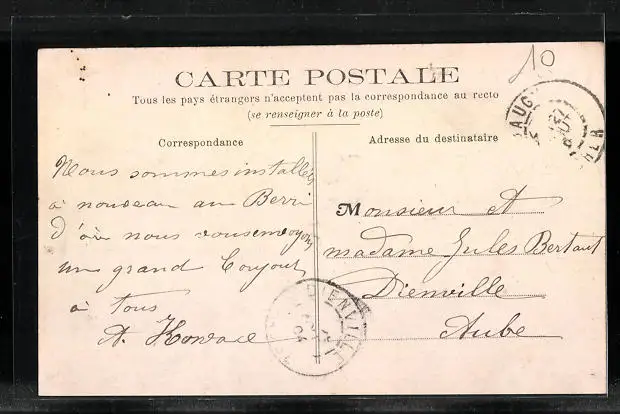 10
CARTE POSTALE
Tous les pays étrangers n'acceptent pas la correspondance au recto
(se renseigner à la poste)
Correspondance
Nous sommes installés
à nouveau au Berri
d'où nous vous envoyons
un grand bonjour
à tous
A.
Adresse du destinataire
Monsieur et
madame Jules Bertaut
Dienville
Aube
DIENVILLE
04